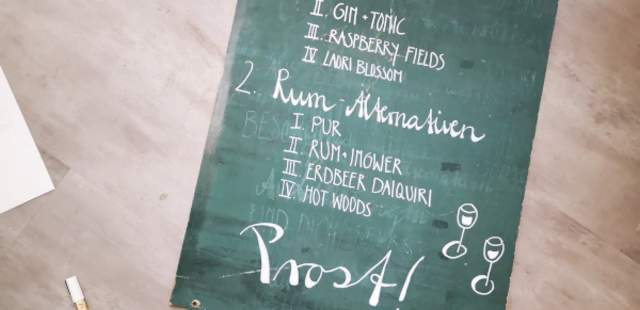 II. GIN + TONIC
III. RASPBERRY FIELDS
IV LADRI BLOSSOM
2. Rum-Alternativen
I. PUR
II. RUM + INGWER
III. ERDBEER DAIQUIRI
IV. HOT WOODS
Prost!